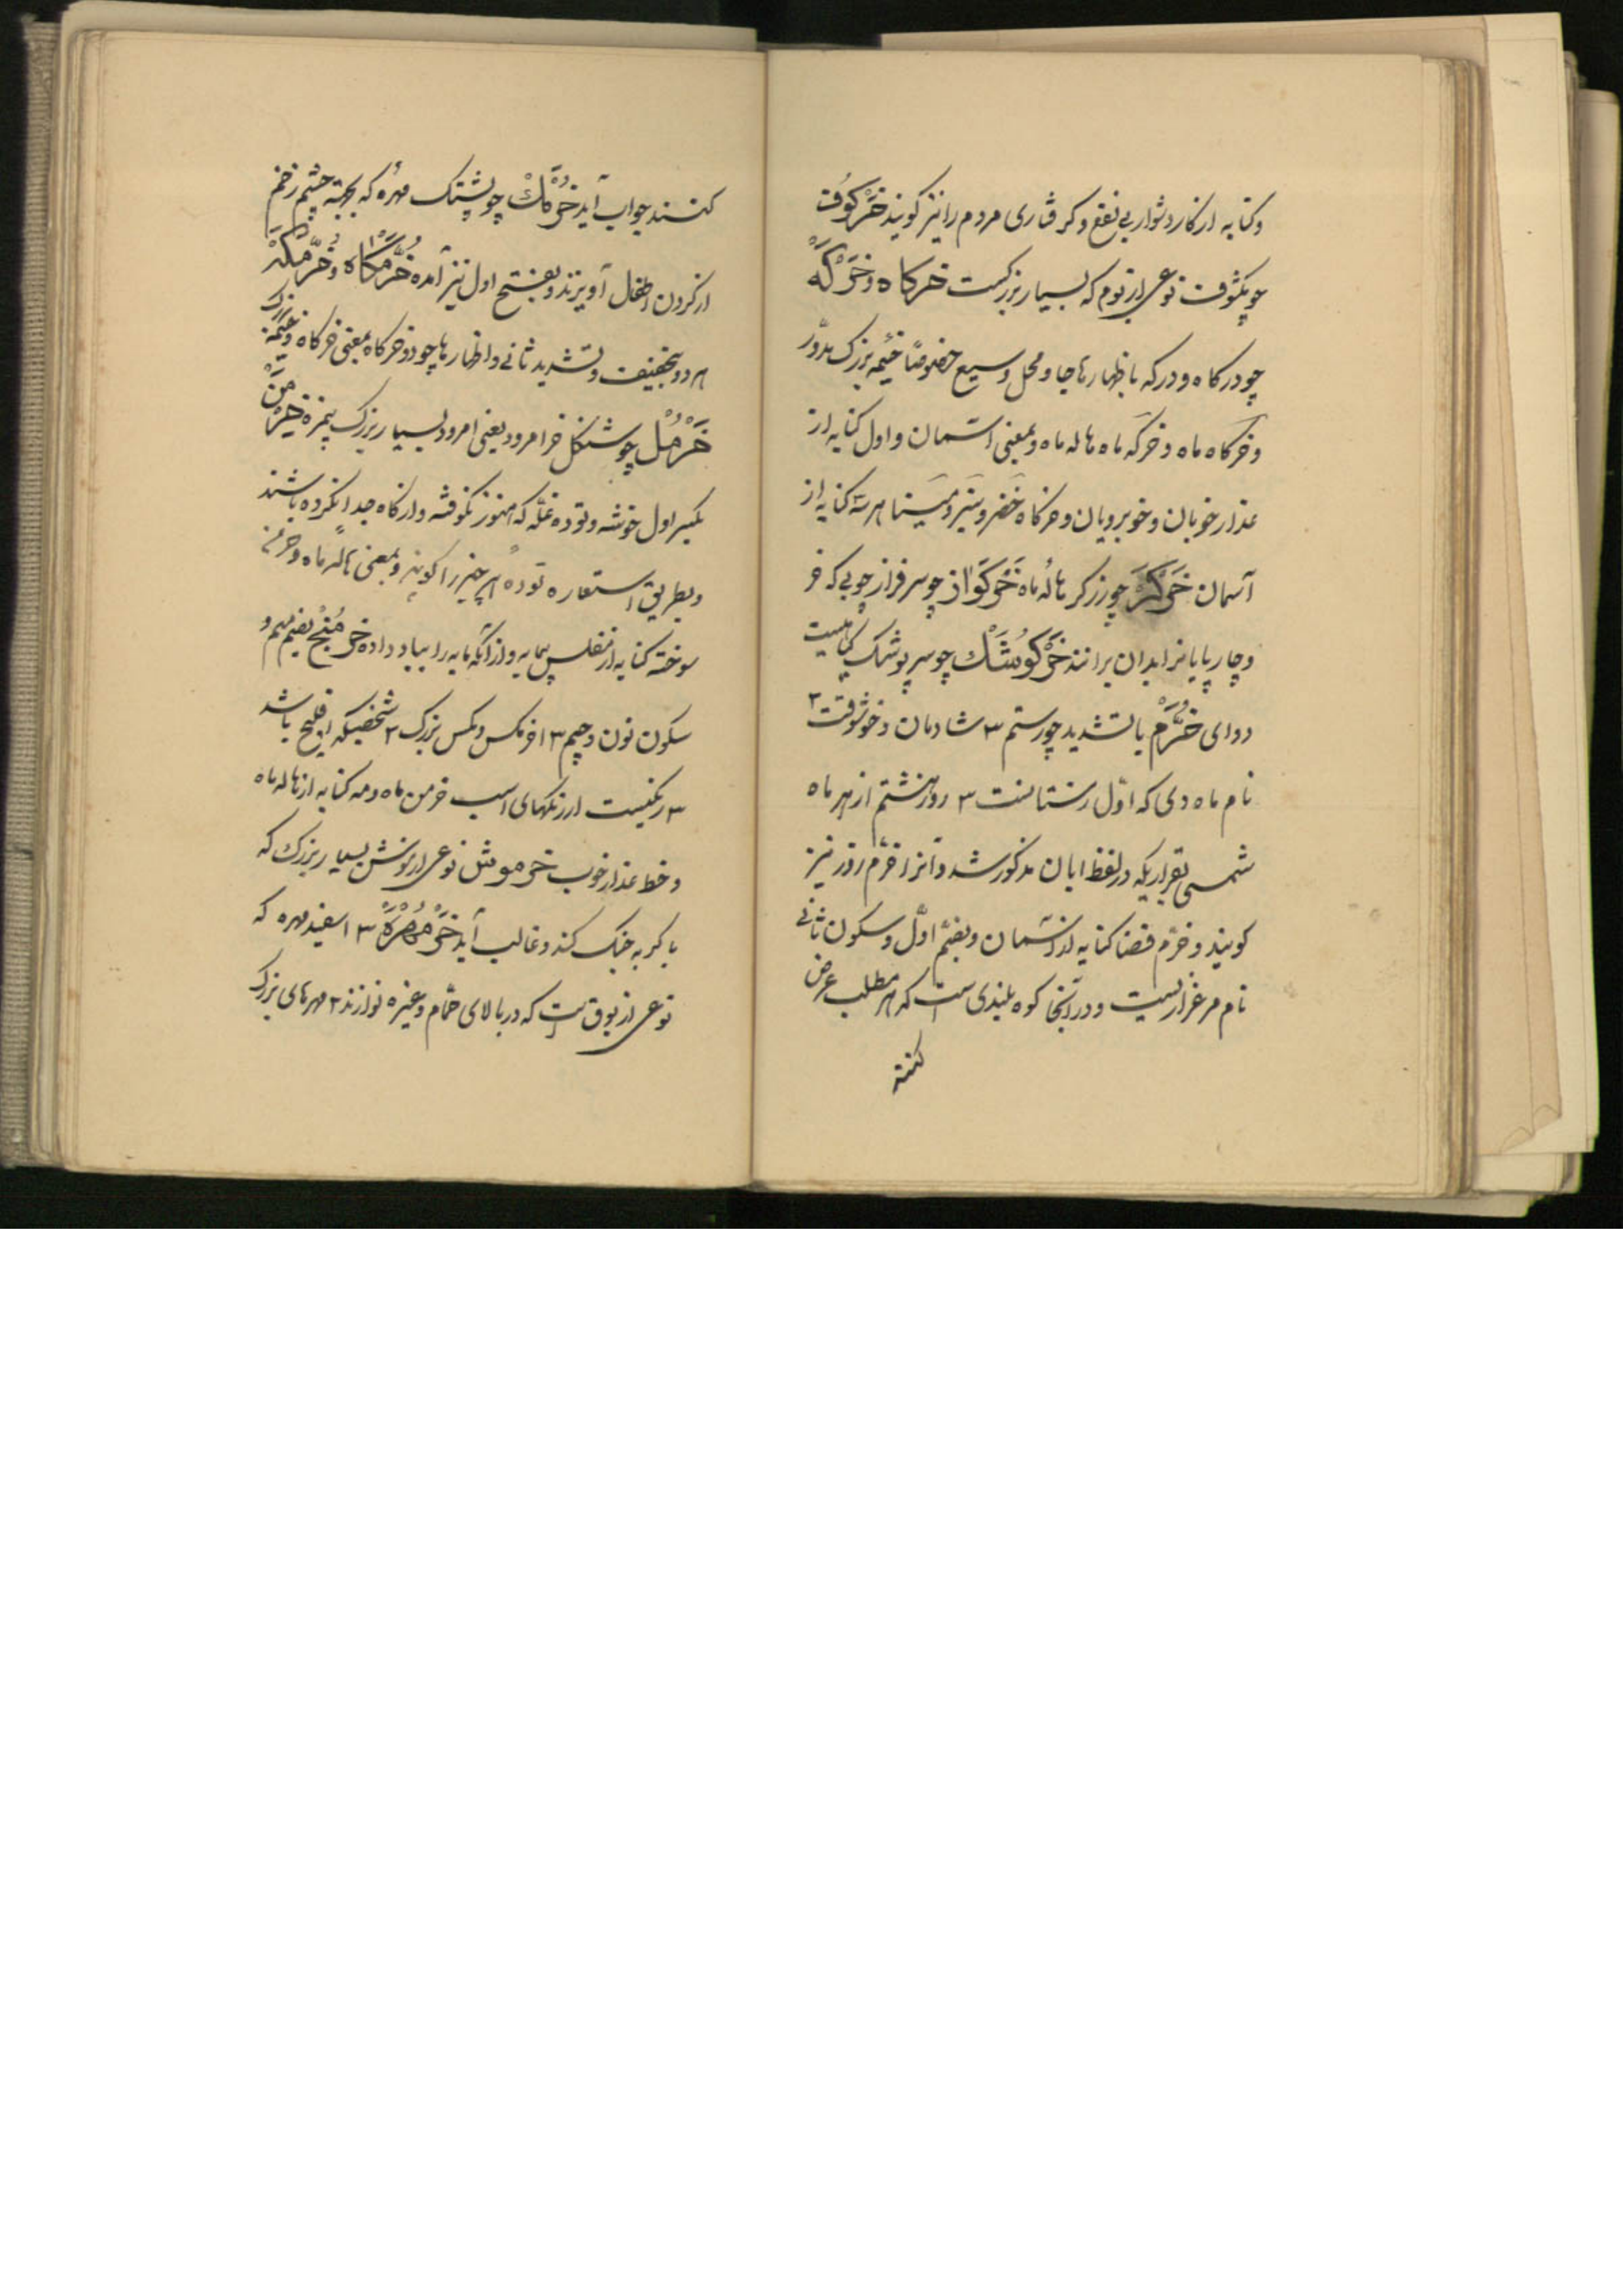 وکنایه از کار دشوار بی نفع و گرفتاری مردم را نیز گویند خَرْکُوْف
چو بگوف نوعی از بوم که بسیار بزرگست خرکاه و خَرْکَهْ
چو درگاه و درگه باظهار ها جا و محل وسیع خصوصاً خیمهٔ بزرگ مدوّر
و خرگاه ماه و خرگه ماه هاله ماه و بمعنی آسمان و اول کنایه از
عذار خوبان و خوبرویان و خرگاه خضر و سبز و مینا هر سه کنایه از
آسمان خَرْکَرْ چو زرگر هالهٔ ماه خَرْکَوَاز چو سرفراز چوبی که خر
و چارپایانرا بدان برانند خَرْکُوشَکْ چو سرپوشک گیاهیست
دوای خُرَّمْ با تشدید چو رستم ٣ شادمان و خوشوقت ٢
نام ماه دی که اوّل زمستانست ٣ روز هشتم از هر ماه
شمسی بقراریکه در لفظ ابان مذکور شد و آنرا خرّم روز نیز
گویند و خرّم فضا کنایه از آسمان و بضم اوّل و سکون ثانی
نام مرغزاریست و در آنجا کوه بلندی است که هر مطلب عرض
کنند
کنند جواب آید خُرْمَکْ چو پشتک مهره که بجهة چشم زخم
از گردن اطفال آویزند و بفتح اول نیز آمده خُرَّمْکَاه و خُرَّمْکَهْ
هر دو بتخفیف و تشدید ثانی و اظهار ها چو دو خرگاه بمعنی خرگاه و خیمهٔ بزرگ
خَرْمُلْ چو سنگل خرامرود یعنی امرود بسیار بزرگ بیمزه خِرْمَنْ
بکسر اول خوشه و توده غلّه که هنوز نکوفته و از کاه جدا نکرده باشند
و بطریق استعاره تودهٔ هر چیز را گویند و بمعنی هالهٔ ماه و خرمن
سوخته کنایه از مفلس بیمایه و از آنکه مایه را بباد داده خَرمُنْج بضم میم و
سکون نون و جیم ٣ اخرمگس و مگس بزرگ ٢ شخصیکه افلیج باشد
٣ رنگیست از رنگهای اسب خرمن ماه و مه کنایه از هاله ماه
و خط عذار خوب خرموش نوعی از موش بسیار بزرگ که
با گربه جنگ کند و غالب آید خَرْمُهْرَهْ ٣ اسفید مهره که
نوعی از بوق است که در بالای حمّام و غیره نوازند ٢ مهرهای بزرگ